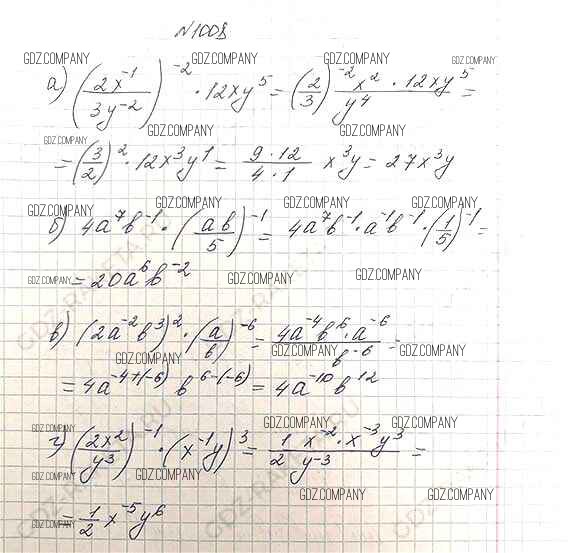 №1008
GDZ.COMPANY GDZ.COMPANY GDZ.COMPANY
а) (2x⁻¹/3y⁻²)⁻² · 12xy⁵ = (2/3)⁻² x² · 12xy⁵/y⁴ =
GDZ.COMPANY
GDZ.COMPANY GDZ.COMPANY
= (3/2)² · 12x³y¹ = 9·12/4·1 x³y = 27x³y
GDZ.COMPANY GDZ.COMPANY
GDZ.COMPANY GDZ.COMPANY
б) 4a⁷b⁻¹ · (ab/5)⁻¹ = 4a⁷b⁻¹ · a⁻¹b⁻¹ · (1/5)⁻¹ =
GDZ.COMPANY
= 20a⁶b⁻²
GDZ.COMPANY GDZ.COMPANY GDZ.COMPANY
GDZ.COMPANY GDZ.COMPANY
в) (2a⁻²b³)² · (a/b)⁻⁶ = 4a⁻⁴b⁶ · a⁻⁶/b⁻⁶ =
GDZ.COMPANY GDZ.COMPANY GDZ.COMPANY
= 4a⁻⁴⁺⁽⁻⁶⁾ b⁶⁻⁽⁻⁶⁾ = 4a⁻¹⁰b¹²
GDZ.COMPANY GDZ.COMPANY GDZ.COMPANY
г) (2x²/y³)⁻¹ · (x⁻¹y)³ = 1/2 x⁻² · x⁻³y³/y⁻³ =
GDZ.COMPANY GDZ.COMPANY
GDZ.COMPANY GDZ.COMPANY
= 1/2 x⁻⁵y⁶
GDZ.COMPANY GDZ.COMPANY